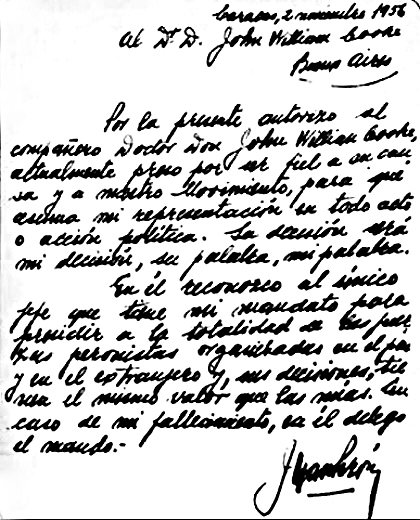 Caracas, 2 noviembre 1956
Al Dr. D. John William Cooke
Buenos Aires
Por la presente autorizo al
compañero Doctor Don John William Cooke,
actualmente preso por ser fiel a su cau
sa y a nuestro Movimiento, para que
asuma mi representación en todo acto
o acción política. Su decisión será
mi decisión, su palabra, mi palabra.
En él reconozco al único
jefe que tiene mi mandato para
presidir a la totalidad de las fuer
zas peronistas organizadas en el país
y en el extranjero y, sus decisiones, tie
nen el mismo valor que las mías. En
caso de mi fallecimiento, en él delego
el mando.-
Juan Perón